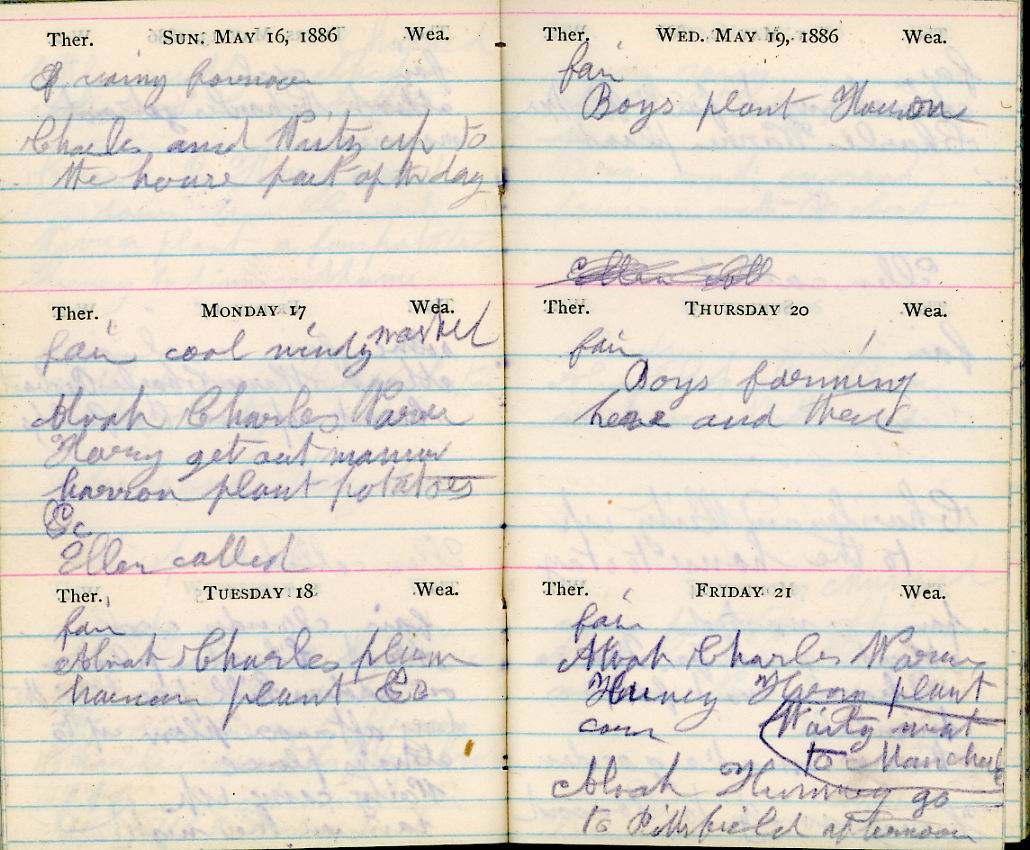 Ther. SUN. MAY 16, 1886 Wea.
rainy
Charles and up to
the house part of the day
Ther. MONDAY 17 Wea.
fair cool windy washed
Alvah Charles Warren
Harry get out manure
harrow plant potatoes
&c
Ellen called
Ther. TUESDAY 18 Wea.
fair
Alvah Charles plow
harrow plant &c
Ther. WED. MAY 19, 1886 Wea.
fair
Boys plant
Ellen
Ther. THURSDAY 20 Wea.
fair
Boys farming
here and there
Ther. FRIDAY 21 Wea.
fair
Alvah Charles Warren
plant
corn
went
to
Alvah go
to Pittsfield afternoon